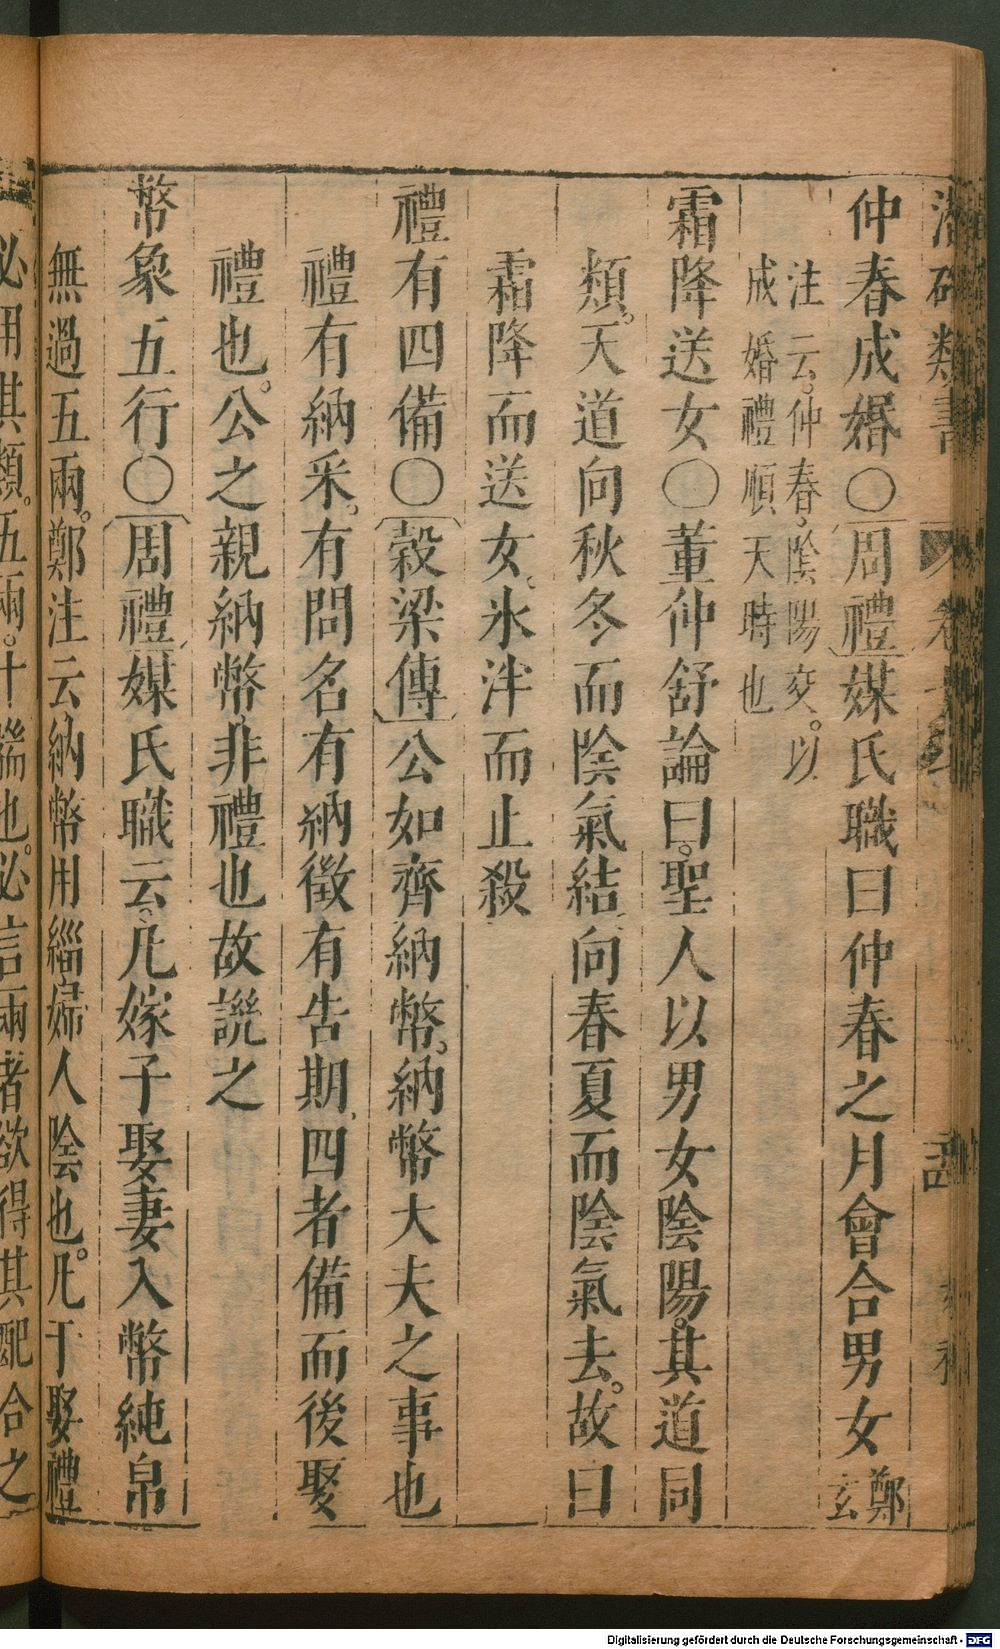 潛確類書 卷
仲春成婚○周禮媒氏職曰仲春之月會合男女鄭玄
注云。仲春陰陽交。以
成婚禮順天時也
霜降送女○董仲舒論曰。聖人以男女陰陽。其道同
類。天道向秋冬而陰氣結向春夏而陰氣去。故曰
霜降而送女。氷泮而止殺
禮有四備○榖梁傳公如齊納幣。納幣大夫之事也
禮有納采。有問名有納徵有告期。四者備而後娶
禮也。公之親納幣。非禮也故譏之
幣象五行○周禮媒氏職云。凡嫁子娶妻入幣純帛
無過五兩。鄭注云納幣用緇婦人陰也。凡于娶禮
必用其類。五兩。十端也。必言兩者欲得其配合之
Digitalisierung gefördert durch die Deutsche Forschungsgemeinschaft - DFG